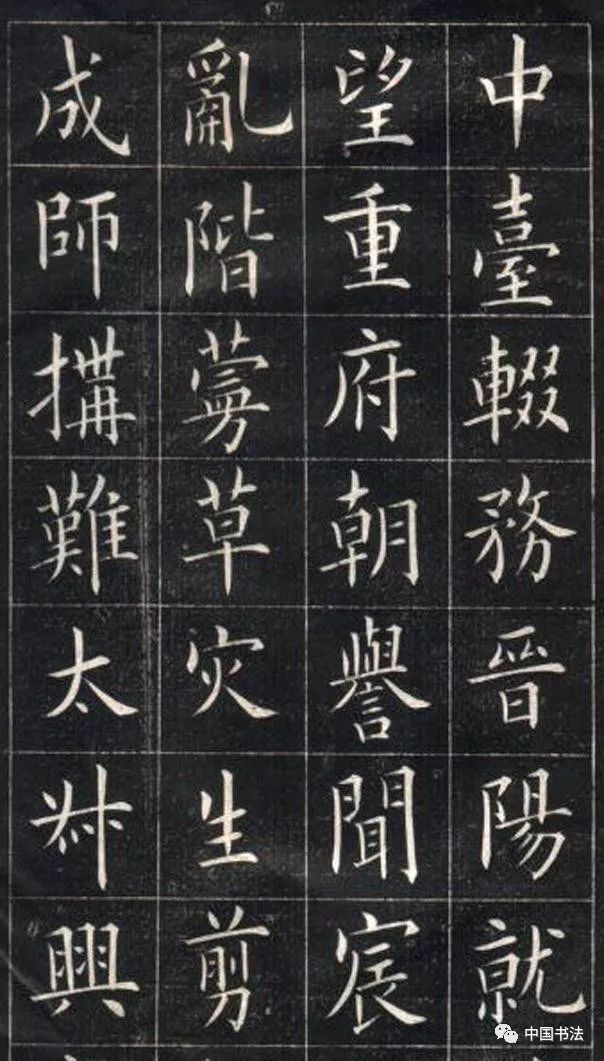 中臺輟務晉陽就
望重府朝譽聞宸
亂階蔓草灾生剪
成師搆難太叔興
中国书法